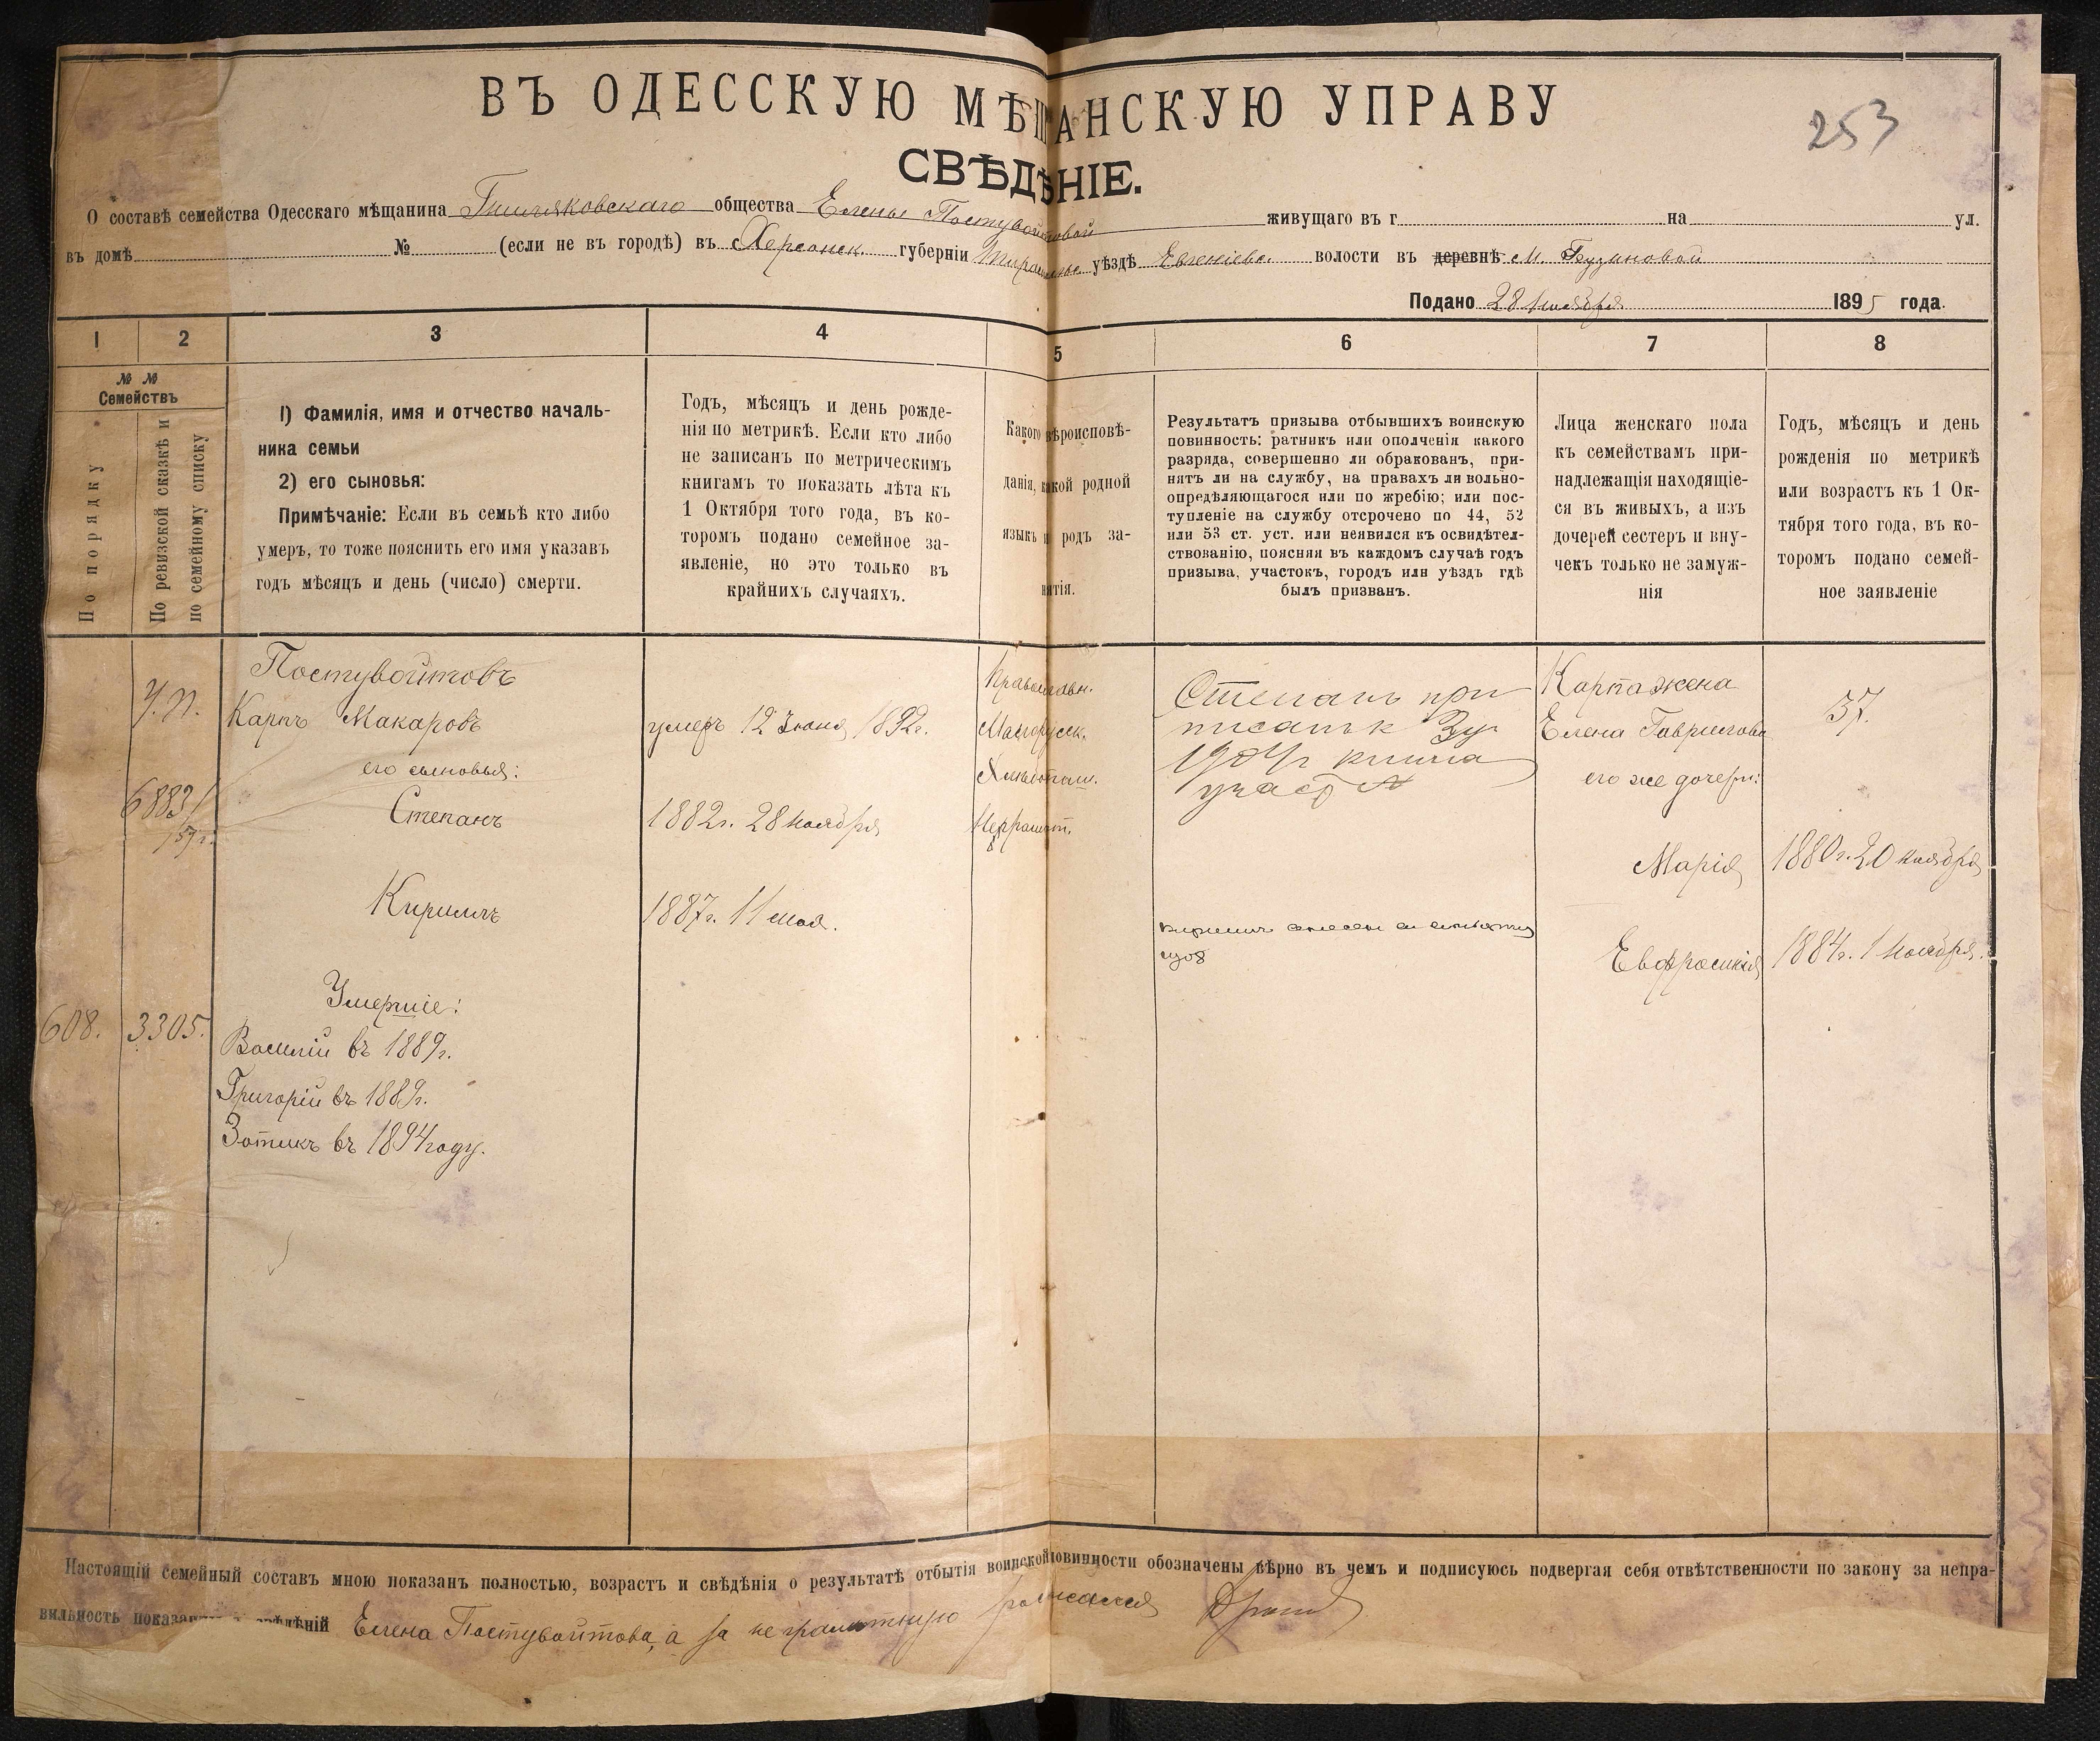 ВЪ ОДЕССКУЮ МѢЩАНСКУЮ УПРАВУ
253
СВѢДѢНІЕ.
О составѣ семейства Одесскаго мѣщанина общества Елены Постувойтовой живущаго въ г. на ул.
въ домѣ № (если не въ городѣ) въ Херсонск. губерніи уѣздѣ Евгеніевс. волости въ деревнѣ м. Бузиновой
Подано 28 Ноября 1895 года.
1 2 3 4 5 6 7 8
№ №
Семействъ
По порядку
По ревизской сказкѣ и
по семейному списку
1) Фамилія, имя и отчество началь-
ника семьи
2) его сыновья:
Примѣчаніе: Если въ семьѣ кто либо
умеръ, то тоже пояснить его имя указавъ
годъ мѣсяцъ и день (число) смерти.
Годъ, мѣсяцъ и день рожде-
нія по метрикѣ. Если кто либо
не записанъ по метрическимъ
книгамъ то показать лѣта къ
1 Октября того года, въ ко-
торомъ подано семейное за-
явленіе, но это только въ
крайнихъ случаяхъ.
Какого вѣроисповѣ-
данія, какой родной
языкъ и родъ за-
нятія.
Результатъ призыва отбывшихъ воинскую
повинность: ратникъ или ополченія какого
разряда, совершенно ли обракованъ, при-
нятъ ли на службу, на правахъ ли вольно-
опредѣляющагося или по жребію; или пос-
тупленіе на службу отсрочено по 44, 52
или 53 ст. уст. или неявился къ освидѣтел-
ствованію, поясняя въ каждомъ случаѣ годъ
призыва, участокъ, городъ или уѣздъ гдѣ
былъ призванъ.
Лица женскаго пола
къ семействамъ при-
надлежащія находящіе-
ся въ живыхъ, а изъ
дочерей сестеръ и вну-
чекъ только не замуж-
нія
Годъ, мѣсяцъ и день
рожденія по метрикѣ
или возрастъ къ 1 Ок-
тября того года, въ ко-
торомъ подано семей-
ное заявленіе
Постувойтовъ
Карпъ Макаровъ
умеръ 12 Іюня 1892г.
его сыновья:
6883/
Степанъ
1882г. 28 Ноября
Кириллъ
1887г. 11 мая.
Умершіе:
608. 3305.
Василій въ 1889г.
Григорій въ 1889г.
Зотикъ въ 1894 году.
Православн.
Малорусск.
Хлѣбопаш.
Неграмот.
Степанъ при
писанъ къ
1904г
участ
Карпа жена
Елена Гаврилова
37.
его же дочери:
Марія
1880г. 20 ноября
Евфросинія
1884г. 1 Ноября.
Настоящій семейный составъ мною показанъ полностью, возрастъ и свѣдѣнія о результатѣ отбытія воинской повинности обозначены вѣрно въ чемъ и подписуюсь подвергая себя отвѣтственности по закону за непра-
вильность Елена Постувойтова, а за неграмотную